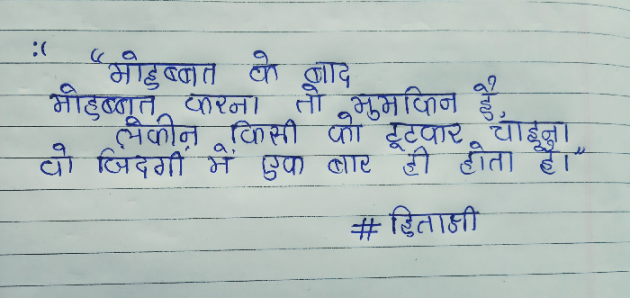 :(
"मोहब्बत के बाद
मोहब्बत करना तो मुमकिन है,
लेकीन किसी को टूटकार चाहना
वो जिंदगी में एक बार ही होता है।"
# हिताक्षी